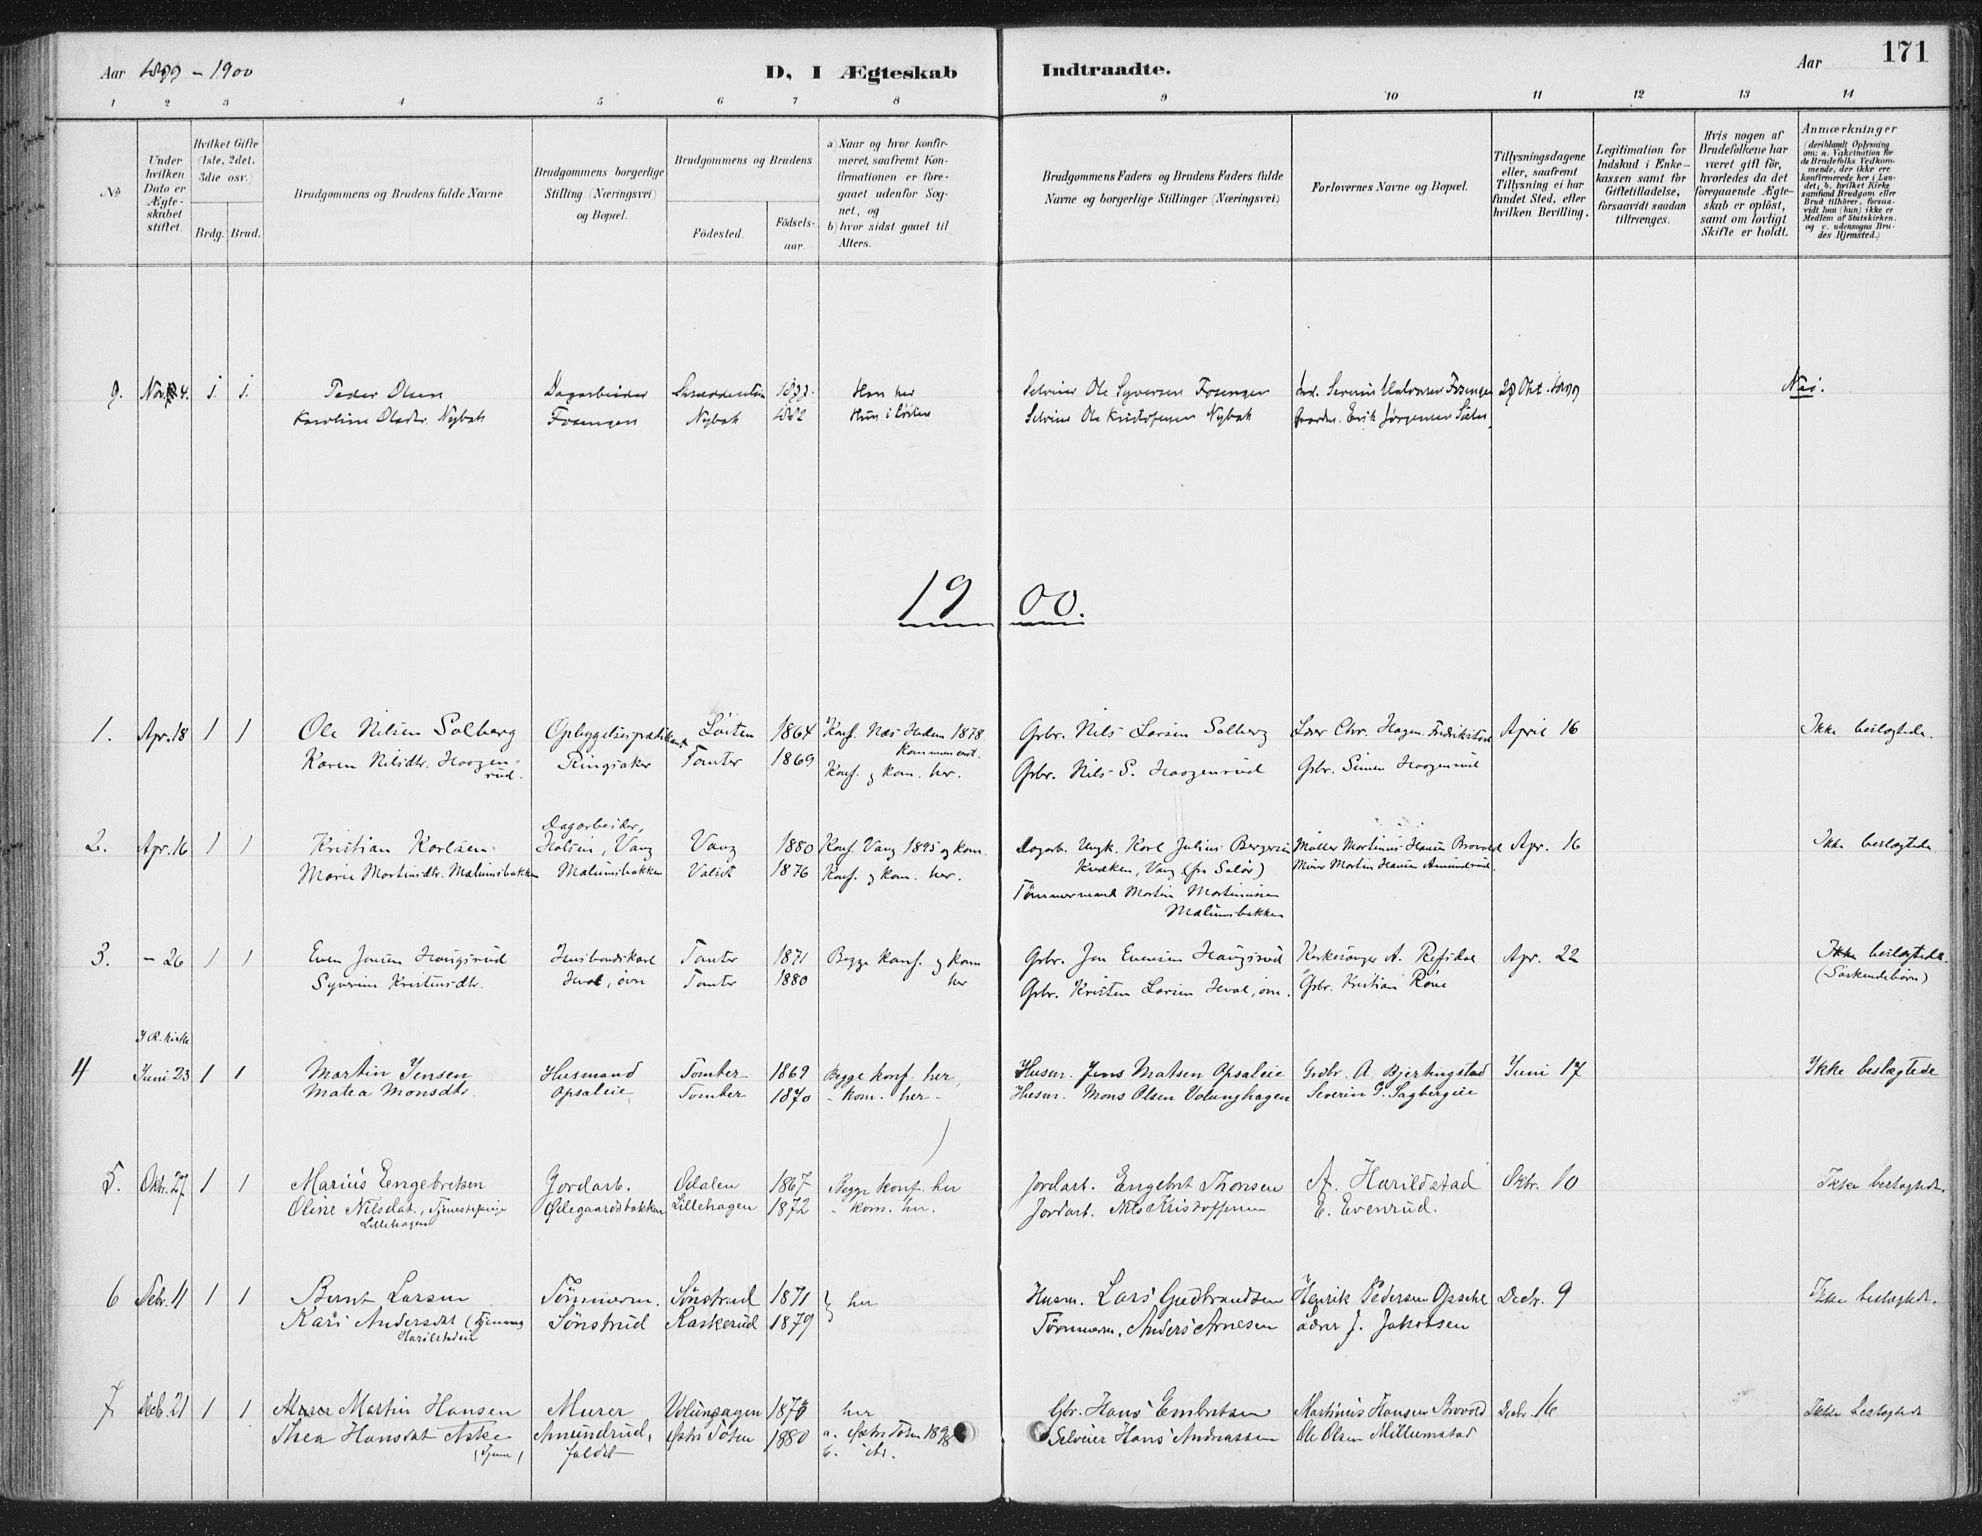 Aar 1899 – 1900
D, I Ægteskab Indtraadte.
Aar 171
1 2 3 4 5 6 7 8 9 10 11 12 13 14
No
Under hvilken Dato er Ægteskabet stiftet.
Hvilket Gifte (1ste, 2det, 3die osv.)
Brdg. Brud.
Brudgommens og Brudens fulde Navne
Brudgommens borgerlige Stilling (Næringsvei) og Bopæl.
Brudgommens og Brudens
Fødested. Fødselsaar.
a) Naar og hvor konfirmeret, saafremt Konfirmationen er foregaaet udenfor Sognet, og
b) hvor sidst gaaet til Alters.
Brudgommens Faders og Brudens Faders fulde Navne og borgerlige Stillinger (Næringsvei)
Forlovernes Navne og Bopæl.
Tillysningsdagene eller, saafremt Tillysning ei har fundet Sted, efter hvilken Bevilling.
Legitimation for Indskud i Enkekassen samt for Giftetilladelse, forsaavidt saadan tiltrænges.
Hvis nogen af Brudefolkene har været gift før, hvorledes da det foregaaende Ægteskab er opløst, samt om lovligt Skifte er holdt.
Anmærkninger (deriblandt Oplysning om: a. Vaksination for de Brudefolks Vedkommende, der ikke ere konfirmerede her i Landet; b. hvilket Kirkesamfund Brudgom eller Brud tilhører, forsaavidt han (hun) ikke er Medlem af Statskirken, og c. udensogns Brudes Hjemsted.)
9. Nov. 4. 1. 1. Peder Olsen Dagarbeider 1877. Han her Selveier Ole Syversen Fosengen Severin Halvorsen Fosengen 29 Okt. 1899 Nei.
Karoline Olsdtr. Nybak Fosengen Nybak 1882 Hun i Løiten Selveier Ole Kristofersen Nybak Erik Jørgensen
1900.
1. Apr. 18 1 1 Ole Nilsen Solberg Løiten 1864 Konf. Næs Hedem 1878 Grbr. Nils Larsen Solberg Chr. Hagen Fredrikstad April 16 Ikke beslægtede.
Karen Nilsdtr. Haagenrud. Ringsaker Tomter 1869 Konf. og kom. her. Grbr. Nils S. Haagenrud Grbr. Simen Haagenrud
2. Apr. 16 1 1 Kristian Karlsen Dagarbeider, Vang Vang 1880 Konf. Vang 1895 og kom. Dagarb. Ungk. Karl Julius Bergersen Møller Martinus Hansen Brovold Apr. 16 Ikke beslægtede
Marie Martinsdtr. Malumsbakken Malumsbakken 1876 Konf. og kom. her. Kvæken, Vang (fra Solør) Murer Martin Hansen Amundrud.
Tømmermand Martin Martinusen
Malumsbakken
3. – 26 1 1 Even Jonsen Haugsrud Husbondskarl Tomter 1871 Begge konf. og kom Grbr. Jon Evensen Haugsrud Kirkesanger A. Refsdal Apr. 22 Ikke beslægtede.
Syverine Kristensdtr. Hval, øvre Tomter 1880 her Grbr. Kristen Larsen Hval, øvr. Grbr. Kristian (Søskendebørn)
I R. Kirke
4 Juni 23 1 1 Martin Jensen Husmand Tomter 1869 Begge konf. her, Husm. Jens Matsen Opsaleie Grdbr. A Bjertingstad Juni 17 Ikke beslægtede
Matea Monsdtr. Opsaleie Tomter 1870 – kom. her – Husm. Mons Olsen Volunghagen Severin G. Sagbergeie
5. Oktr. 27 1 1 Marius Engebretsen Jordarb. Odalen 1867 Begge konf. her Jordarb. Engebret Thorsen A. Harildstad Oktbr. 10 Ikke beslægtede.
Oline Nilsdat. Tjenestepige Ødegaardsbakken Lillehagen 1872 – kom. her. Jordarb. Nils Kristoffersen E. Evenrud.
Lillehagen
6 Debr. 11 1 1 Bernt Larsen Tømmerm. Sønstrud 1871 } her Husm. Lars Gudbrandsen Henrik Pedersen Opsahl Decbr. 9 Ikke beslægtede.
Kari Andersdat Sønstrud Kaskerud 1879 Tømmerm. Anders Arnesen J. Jakobsen
7 Decb. 21 1 1 Murer Martin Hansen Murer Volungagen 1873 her Gbr. Hans Embretsen Martinius Hansen Brovold Decbr. 16 Ikke beslægtede
Thea Hansdat Aske Amundrud, Østre Toten 1880 a. Østre Toten 1898 Selveier Hans Andreassen Ole Olsen Millumstad
(Tjener) faldet b. ibd.